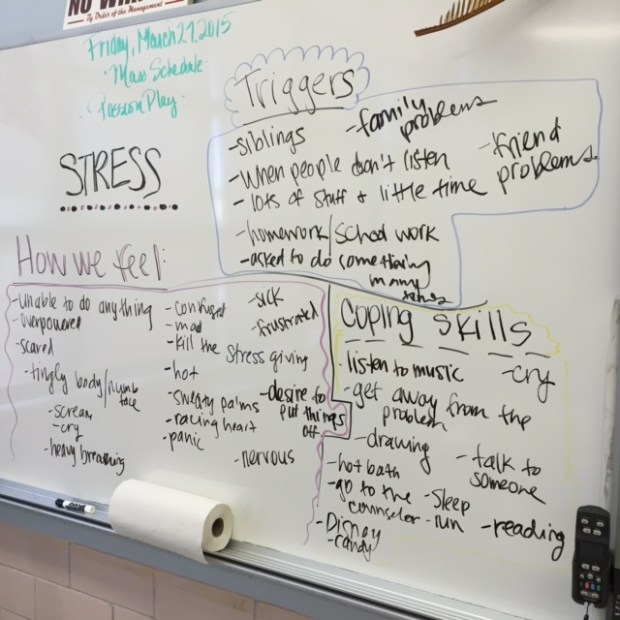 By Order of the Management
Friday, March 27, 2015
· Mass Schedule
· Passion Play ·
STRESS
Triggers
- siblings
- family problems
- When people don't listen
- friend problems
- lots of stuff & little time
- homework/school work
- asked to do something
many times
How we feel:
- unable to do anything
- overpowered
- scared
- tingly body/numb
face
- scream
- cry
- heavy breathing
- confused
- mad
- kill the stress giving
- hot
- sweaty palms
- racing heart
- panic
- sick
- frustrated
- desire to
put things
off
- nervous
Coping Skills
- listen to music
- cry
- get away from the
problem
- drawing
- talk to
someone
- hot bath
- go to the
counselor
- sleep
- run
- reading
- Disney
- candy